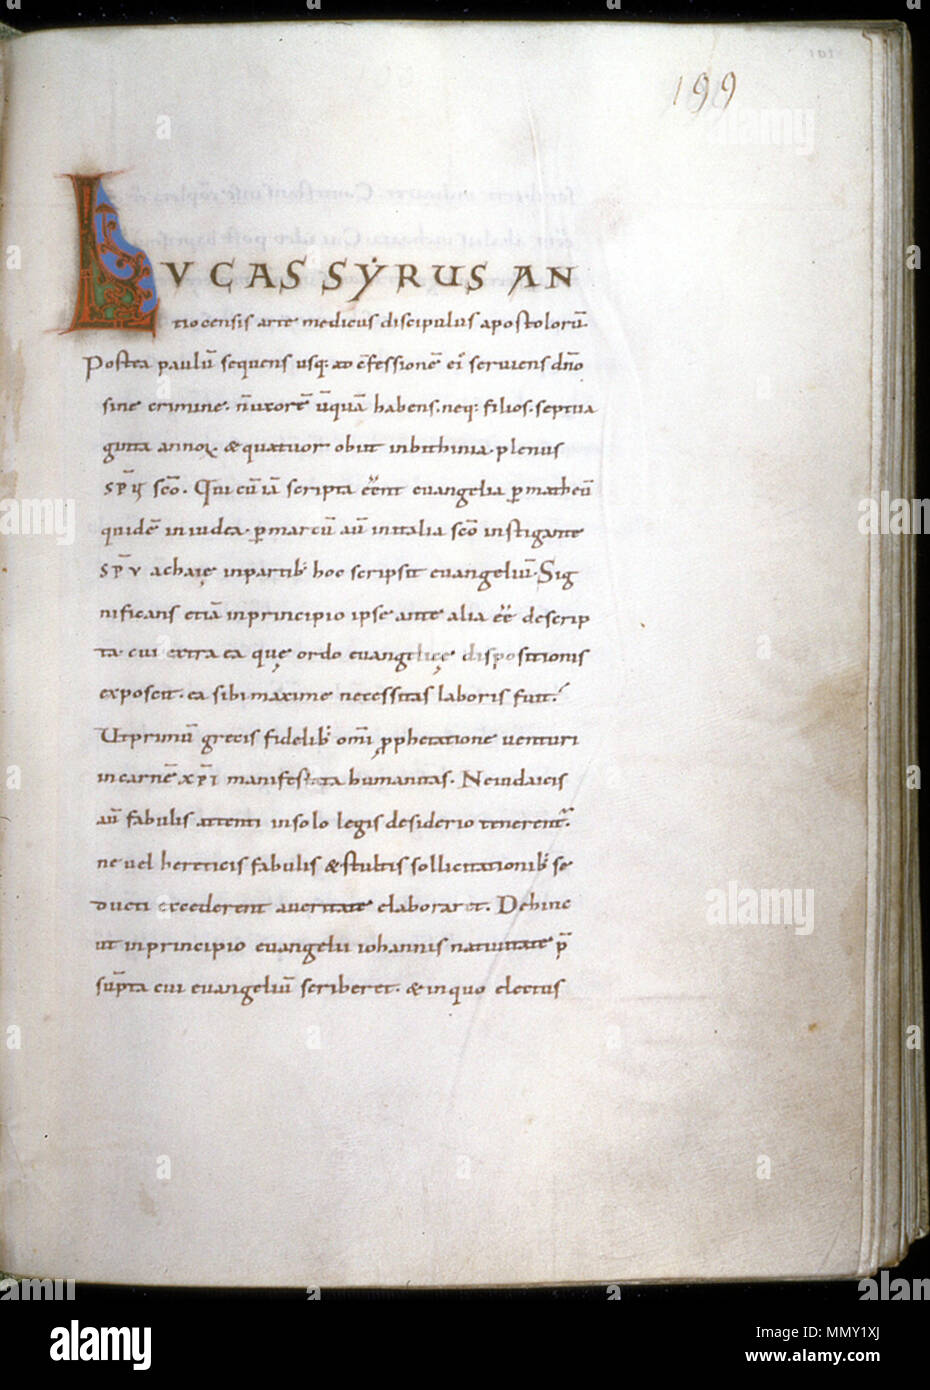 199
LVCAS SYRUS AN
tiocensis arte medicus discipulus apostolorū
Postea paulū sequens usq; ad c̄fessionē ei' seruiens dn̄o
sine crimine. n̄ uxorē ūquā habens. neq; filios. septua
ginta annoꝝ. & quatuor obiit in bithinia. plenus
sp̄ū sc̄o. Qui cū iā scripta eēnt euangelia p̄ matheū
quidē in iudea. p̄ marcū aū in italia sc̄o instigante
sp̄u achaię in partib; hoc scripsit euangeliū. Sig
nificans etiā in principio ipse ante alia eē descrip
ta. cui extra ea quę ordo euangelicę dispositionis
exposcit. ea sibi maxime necessitas laboris fuit.
Ut primū grecis fidelib; omī ꝓphetatione uenturi
in carnē xp̄i manifestata humanitas. Ne iudaicis
aū fabulis attenti in solo legis desiderio tenerent.
ne uel hereticis fabulis & stultis sollicitationib; se
ducti excederent a ueritate elaboraret. Dehinc
ut in principio euangelii iohannis natiuitate p̄
sūpta cui euangeliū scriberet. & in quo electus
alamy
Image ID: MMY1XJ
www.alamy.com